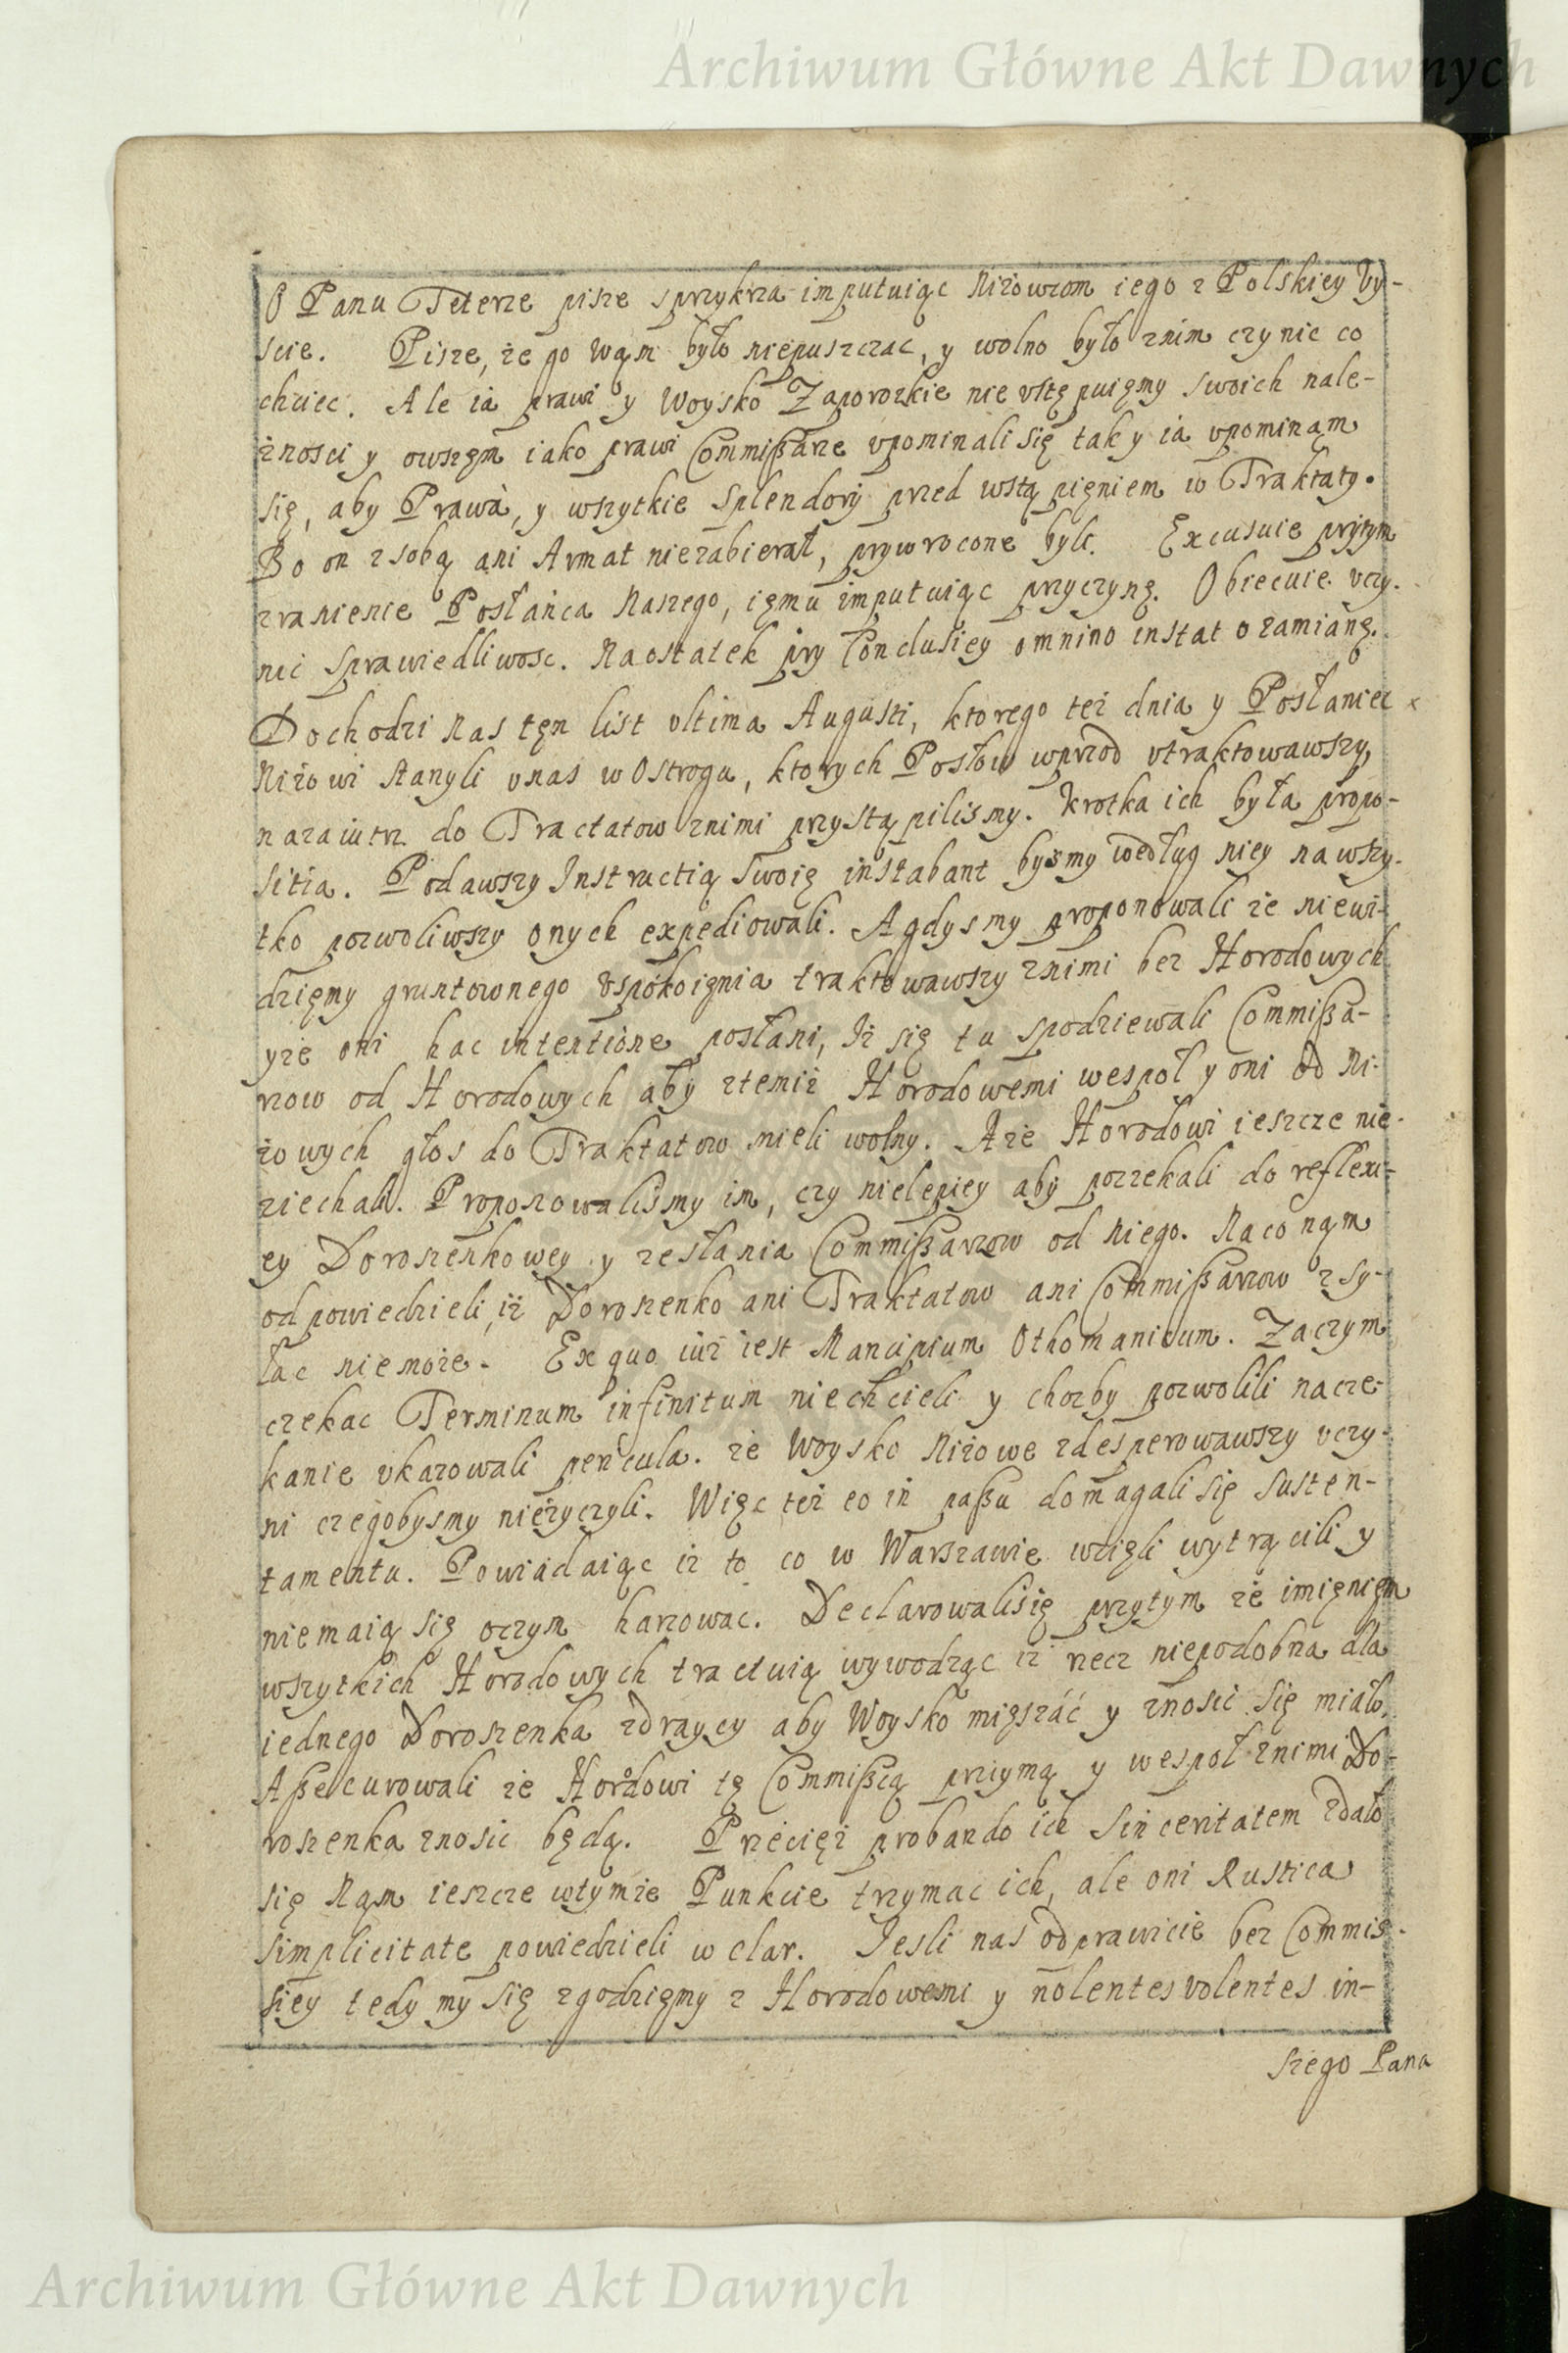 Archiwum Główne Akt Dawnych
O Panu Teterze pisze sprzykrza imputuiąc Niżowzom iego z Polskiey Vy-
scie. Pisze, że go Wąm było niepuszczac, y wolno było znim czynic co
chciec. Ale ia prawi y Woysko Zaporozkie nie vstę puięmy swoich nale-
żnosci y owszęm iako prawi Commißarze vpominali się tak y ia vpominąm
się, aby Prawà, y wszytkie Splendory przed wstą pięniem w Traktaty.
Bo on zsobą ani Armat niezabierał, prywrocone byle. Excusuie prżytym
zranienie Posłańca Naszego, ięmu imputuiąc przyczynę. Obiecuie vczy-
nic sprawiedliwosc. Naostatek przy Conclusiey omnino instat o zamianę.
Dochodzi Nas tęn list vltima Augusti, ktorego też dnia y Posłaniec
Niżowi stanyli vnas w Ostrogu, ktorych Posłow wprzod vtraktowawszy,
nazaiutrz do Tractatow znimi przystą pilismy. Krotka ich była propo-
sitia. Podawszy Instructią swoię instabant bysmy według niey na wszy-
tko pozwoliwszy onych expediowali. A gdysmy proponowali że niewi-
dzięmy gruntownego vspokoięnia traktowawszy znimi bez Horodowych
yże oni hac intentione posłani, Iż się tu spodziewali Commißa-
rzow od Horodowych aby ztemiż Horodowemi wespoł y oni od Ni-
żowych głos do Traktatow mieli wolny. Aże Horodowi ieszcze nie-
ziechali. Proponowalismy im, czy nielepiey aby poczekali do reflexi-
ey Doroszenkowey y zesłania Commißarzow od niego. Na co nąm
odpowiedzieli, iż Doroszenko ani Traktatow ani Commißarzow zsy-
łac niemoże. Ex quo iuż iest Mancipium Othomanicum. Zaczym
czekac Terminum infinitum niechcieli y chocby pozwolili nacze-
kanie vkazowali pericula. że Woysko Niżowe zdesperowawszy vczy-
ni czegobysmy nieżyczyli. Więc też eo in paßu domagali się susten-
tamentu. Powiadaiąc iż to co w Warszawie wzięli wytrącili y
niemaią się oczym harcowac. Declarowali się przytym że imięnięm
wszytkich Horodowych tractuią wywodząc iż rzecz niepodobna dla
iednego Doroszenka zdraycy aby Woysko mięszáć y znosic się miało.
Aßecurowali że Horodowi tę Commißią prziymą y wespoł znimi Do-
roszenka znosic będą. Przecięż probando ich Sinceritatem zdało
się Nąm ieszcze wtymże Punkcie trzymac ich, ale oni Rustica
simplicitate powiedzieli w clar. Jesli nas odprawicie bez Commis-
siey tedy my się zgodzięmy z Horodowemi y nolentes volentes in-
szego Pana
Archiwum Główne Akt Dawnych